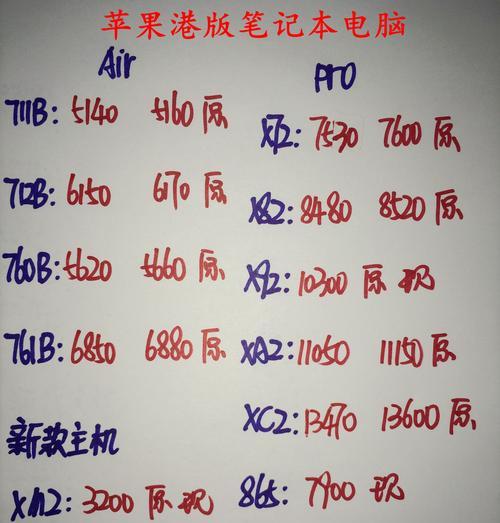 苹果港版笔记本电脑
Air
711B: 5140 5160 原
712B: 6150 6170 原
760B: 5620 5660 原
761B: 6850 6880 原
新款主机
XM2: 3200 原 现
Pro
X72: 7530 7600 原
X82: 8480 8520 原
X92: 10300 原 现
XA2: 11050 11150 原
XC2: 13470 13600 原
865: 7900 现